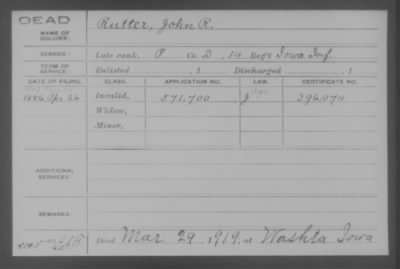 DEAD
NAME OF SOLDIER: Rutter, John R.
SERVICE: Late rank, P Co. D, 14 Reg't Iowa Inf.
TERM OF SERVICE: Enlisted , 1 Discharged , 1
DATE OF FILING. CLASS. APPLICATION NO. LAW. CERTIFICATE NO.
1896, Apr 26 Invalid, 571,700 J 396,074
Widow,
Minor,
ADDITIONAL SERVICES:
REMARKS:
Died Mar 29, 1919, at Washta Iowa